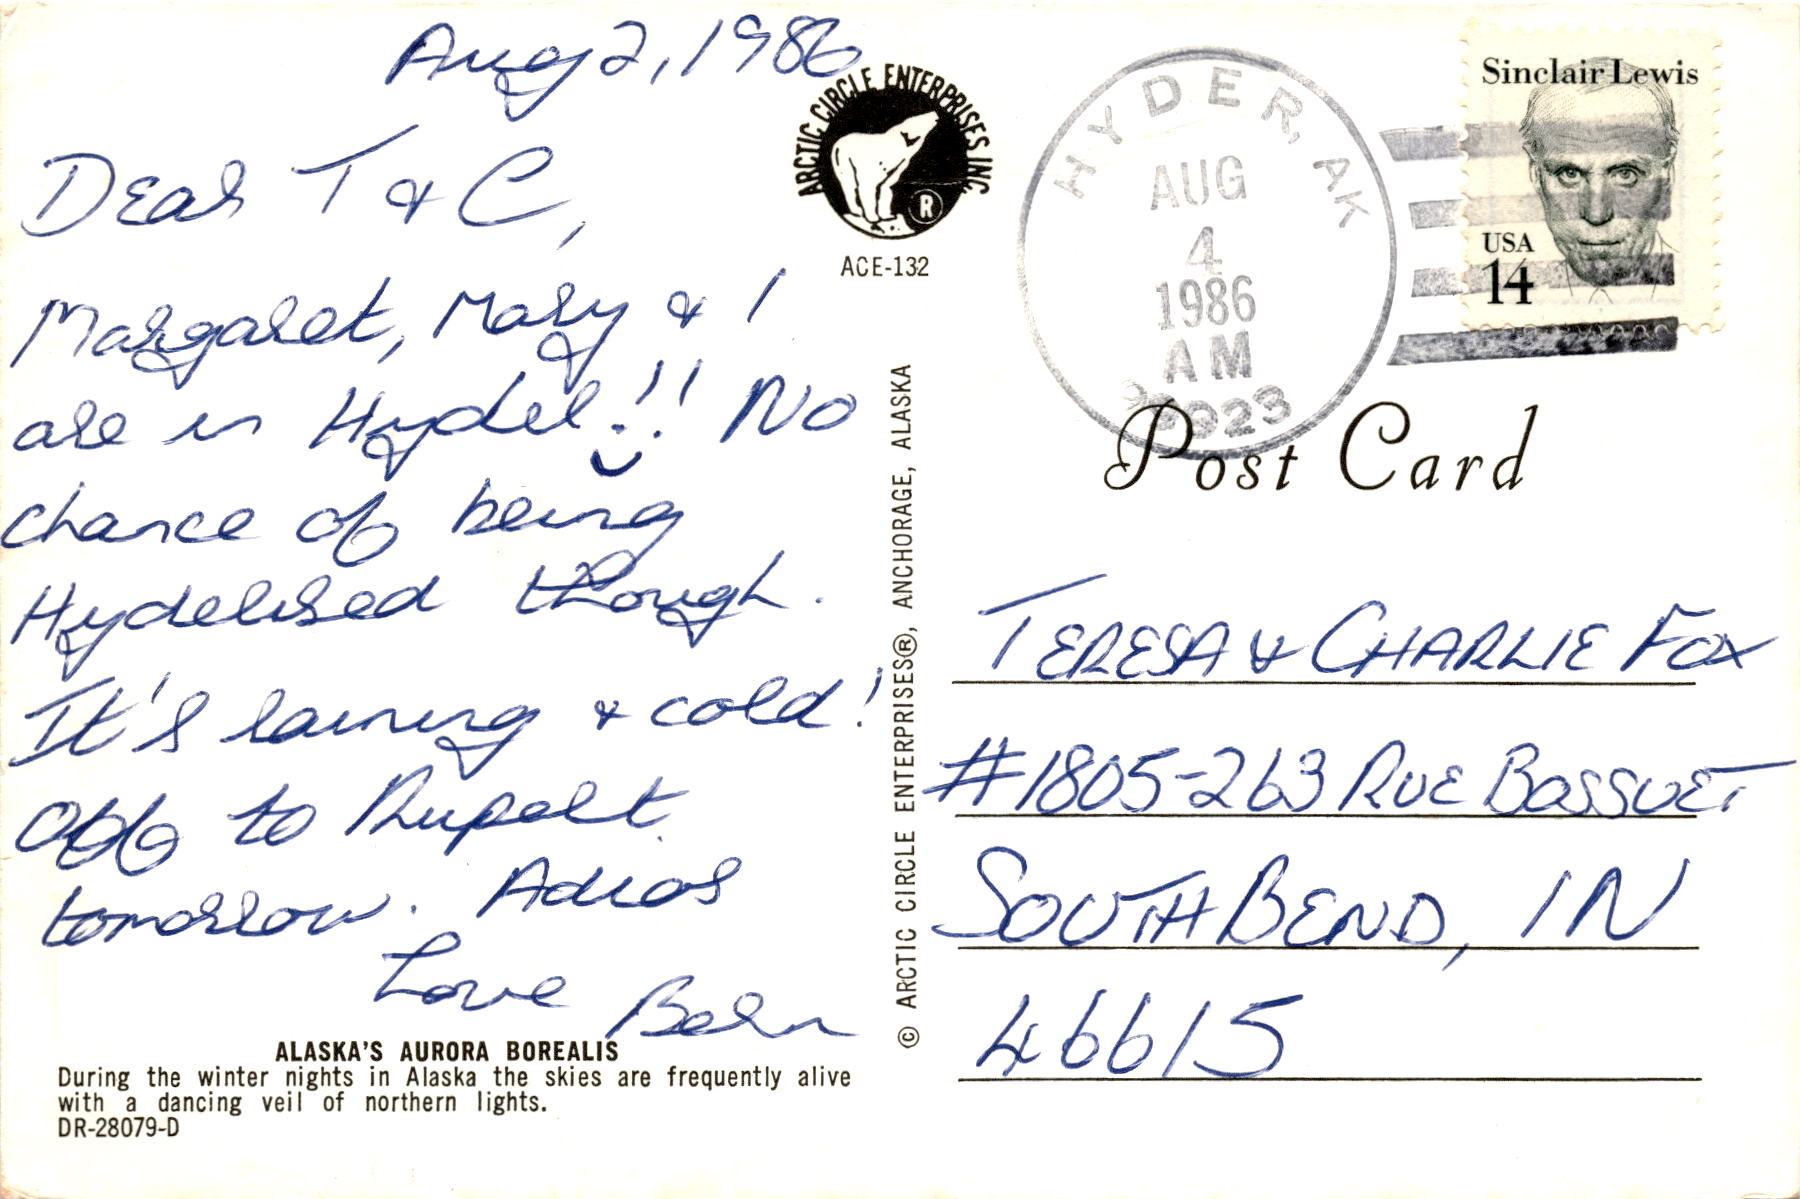 Aug 2, 1986
Dear T & C,
Margaret, Mary & I
are in Hyder!! No
chance of being
Hyderised though.
It's raining & cold!
Off to Rupert
tomorrow. Adios
Love
ALASKA'S AURORA BOREALIS
During the winter nights in Alaska the skies are frequently alive
with a dancing veil of northern lights.
DR-28079-D
ARCTIC CIRCLE ENTERPRISES INC
®
ACE-132
© ARCTIC CIRCLE ENTERPRISES®, ANCHORAGE, ALASKA
HYDER, AK
AUG
4
1986
AM
Sinclair Lewis
USA
14
Post Card
TERESA & CHARLIE FOX
#1805-263 RUE BOSSUET
SOUTH BEND, IN
46615